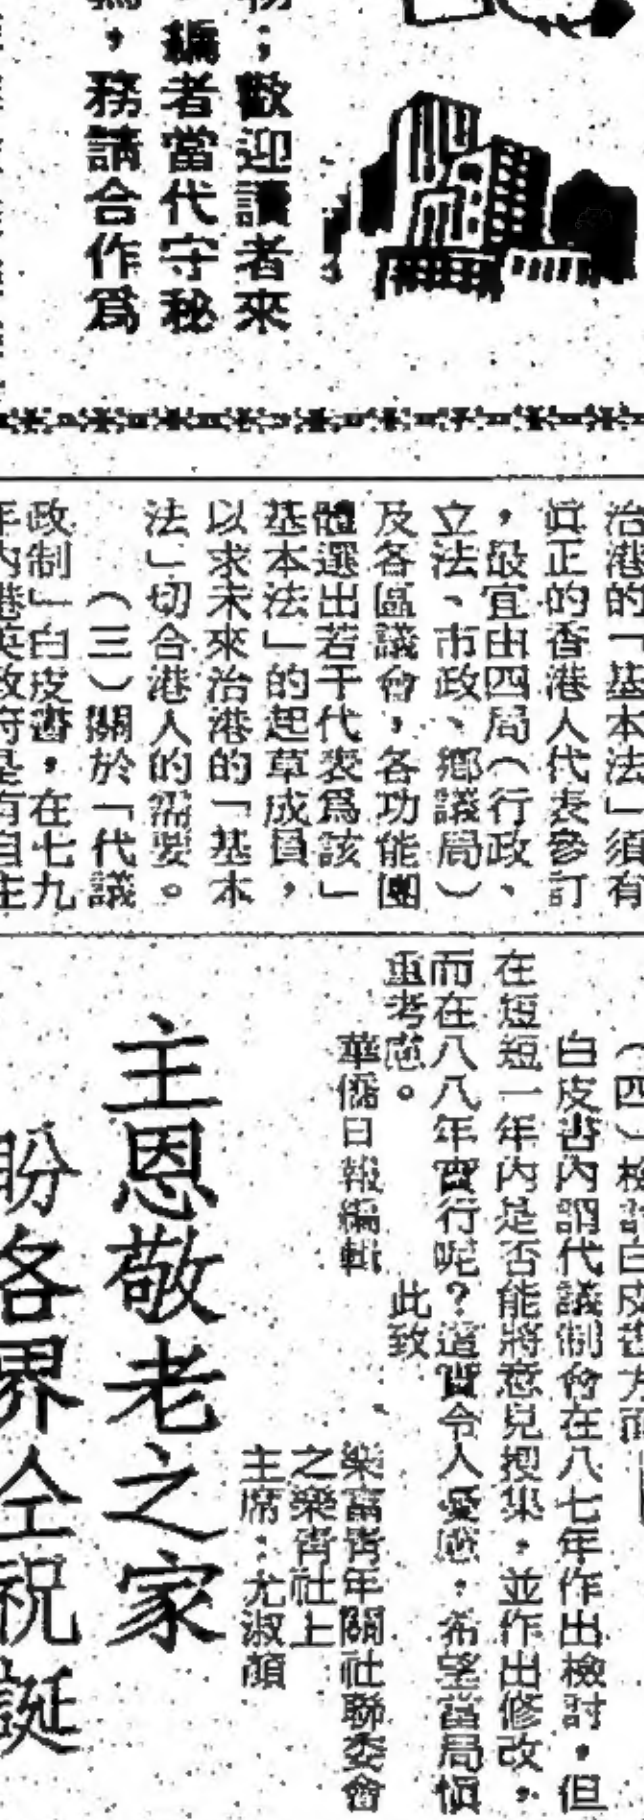 物；歡迎讀者來
編者當代守秘
，務請合作爲
治港的「基本法」須有
眞正的香港人代表參訂
，最宜由四局（行政、
立法、市政、鄉議局）
及各區議會，各功能團
體選出若干代表爲該「
基本法」的起草成員，
以求未來治港的「基本
法」切合港人的需要。
（三）關於「代議
政制」白皮書，在七九
年內港英政府是有自主
（四）檢討白皮書方面
白皮書內謂代議制會在八七年作出檢討，但
在短短一年內是否能將意見搜集，並作出修改，
而在八八年實行呢？這實令人憂慮，希望當局愼
重考慮。
此致
華僑日報編輯
樂富青年關社聯委會
之樂青社上
主席：尤淑顏
主恩敬老之家
盼各界仝祝誕